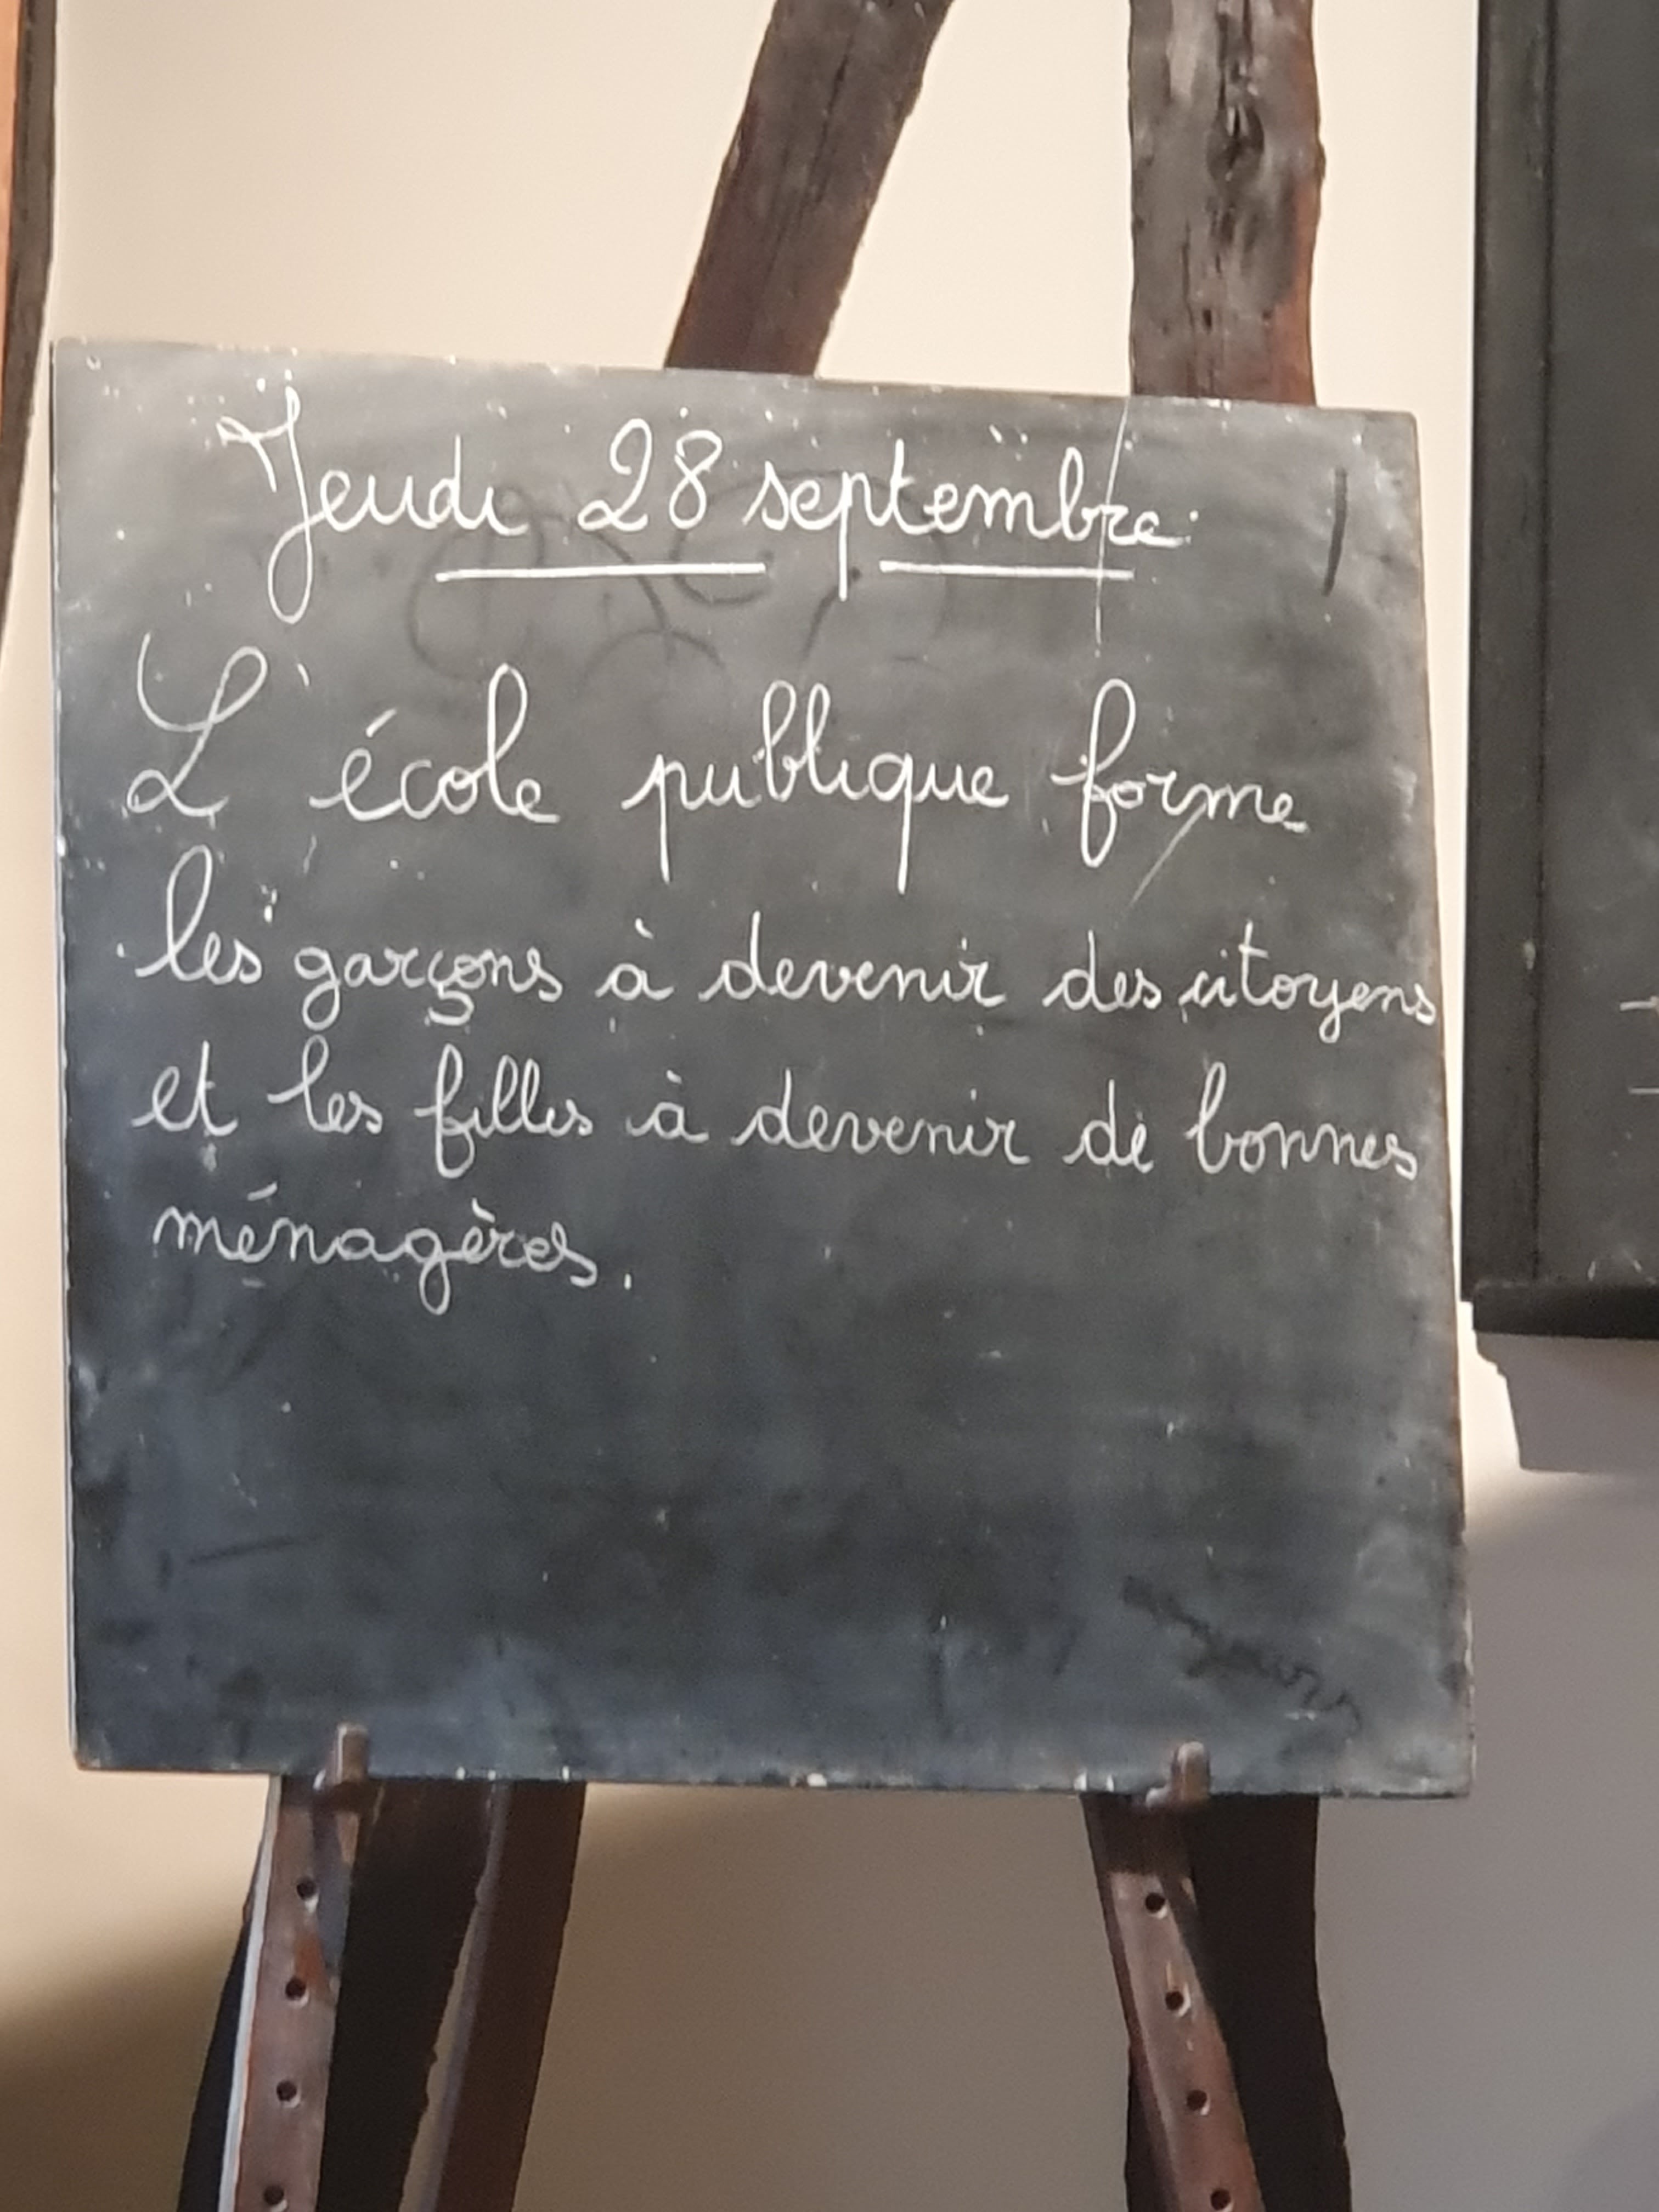 Jeudi 28 septembre
L'école publique forme
les garçons à devenir des citoyens
et les filles à devenir de bonnes
ménagères.